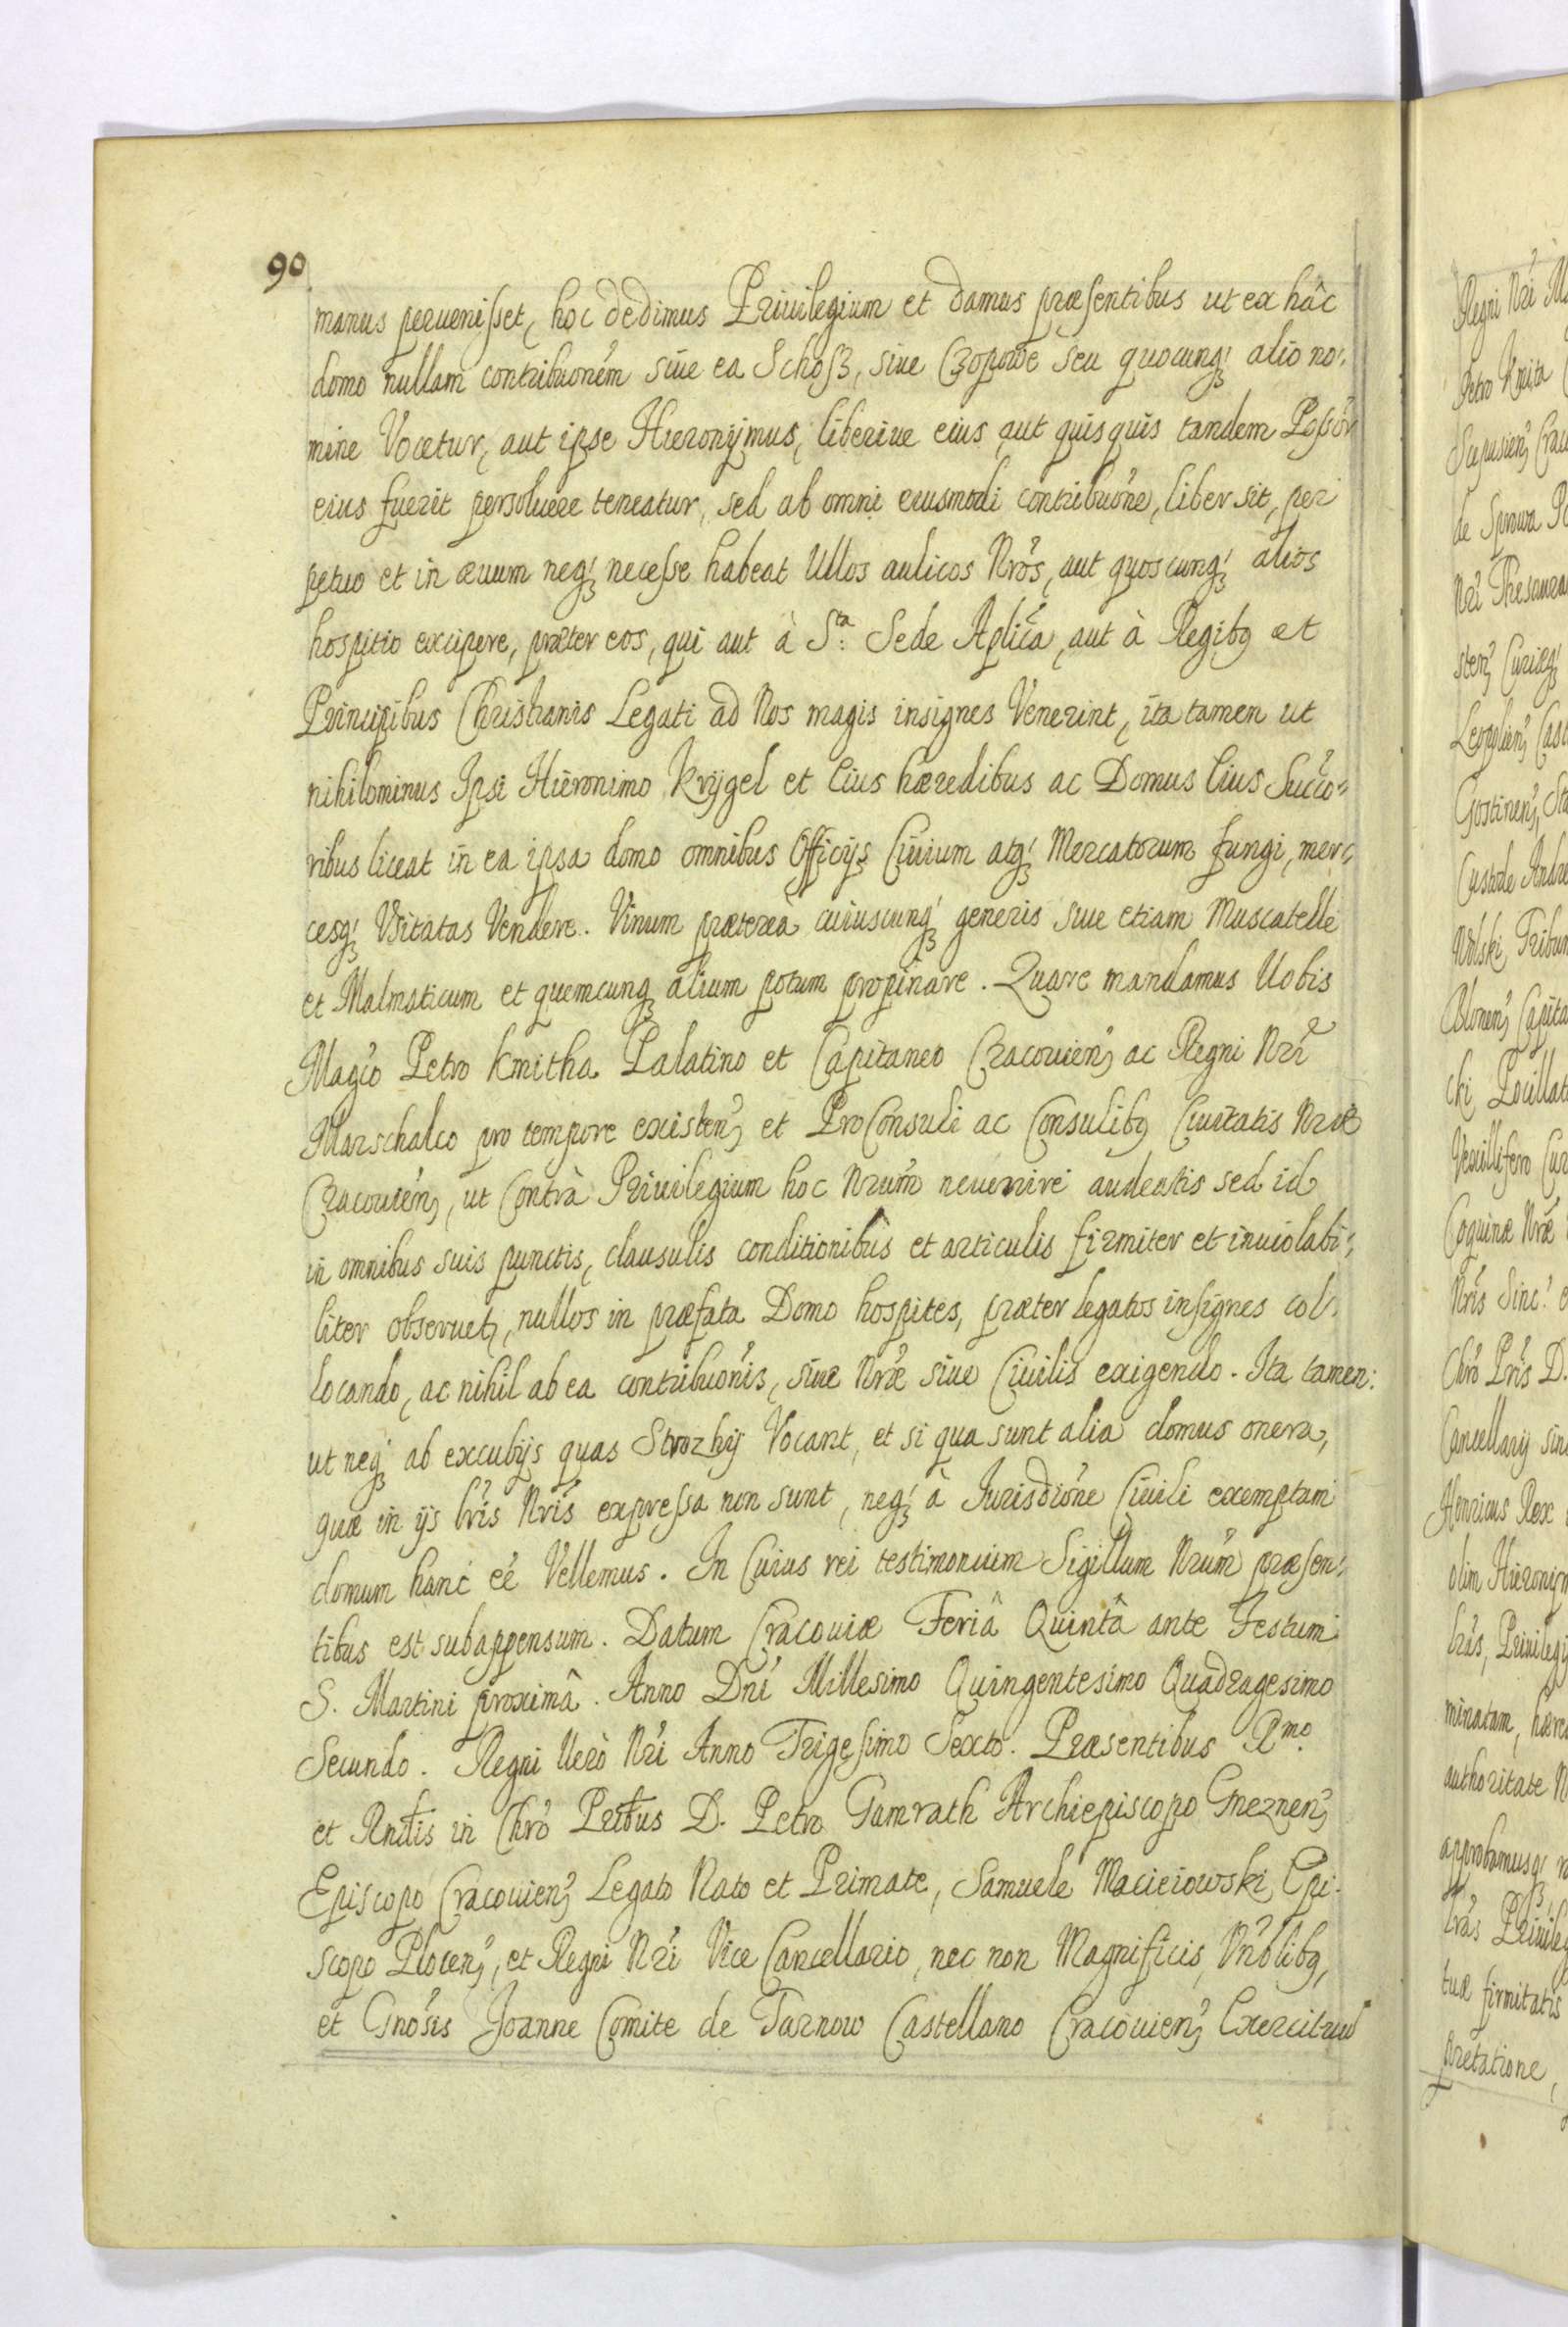 90
manus peruenisset, hoc dedimus Priuilegium et damus præsentibus ut ex hâc
domo nullam contribuoném siue ea Schosz, siue Czopowe seu quocunqꝫ alio no:
mine Vocetur, aut ipse Hieronijmus, liberiue eius aut quisquis tandem Possór
eius fuerit persoluere teneatur, sed ab omni eiusmodi contribuóne, liber sit, per
petuo et in æuum neqꝫ necesse habeat Ullos aulicos Nrós, aut quoscunqꝫ alios
hospitio excipere, præter eos, qui aut à Sta: Sede Aplicá, aut à Regibꝫ et
Principibus Christianis Legati ad Nos magis insignes Venerint, ita tamen ut
nihilominus Ipsi Hieronimo Krijgel et Eius hæredibus ac Domus Eius Succó=
ribus liceat in ea ipsa domo omnibus Officijs Ciuium atqꝫ Mercatorum fungi, mer=
cesqꝫ Vsitatas Vendere. Vinum prætereà cuiuscunqꝫ generis siue etiam Muscatelle
et Malmaticum et quemcunqꝫ alium potum propinare. Quare mandamus Uobis
Magcó Petro Kmitha Palatino et Capitaneo Cracouienꝫ ac Regni Nrí
Marschalco pro tempore existenꝫ et ProConsuli ac Consulibꝫ Ciuitatis Nræ
Cracouienꝫ, ut Contrà Priuilegium hoc Nrúm neuenire audeatis sed id
in omnibus suis punctis, clausulis conditionibus et articulis firmiter et inuiolabi:
liter obseruetꝫ, nullos in præfata Domo hospites, præter legatos insignes col:
locando, ac nihil ab ea contribuónis, siue Nræ siue Ciuilis exigendo. Ita tamen:
ut neqꝫ ab excubijs quas Strozhij Vocant, et si qua sunt alia domus onera,
quæ in ijs lrís Nrís expressa non sunt, neqꝫ à Jurisdióne Ciuili exemptam
domum hanc eé Vellemus. In Cuius rei testimonium Sigillum Nrúm præsen:
tibus est subappensum. Datum Cracouiæ Feriâ Quintâ ante Festum
S. Martini proximâ. Anno Dní Millesimo Quingentesimo Quadragesimo
Secundo. Regni Uerò Nrí Anno Trigesimo Sexto. Præsentibus Rmo
et Rndis in Chró Pribus D. Petro Gamrath Archiepiscopo Gneznenꝫ
Episcopo Cracouienꝫ Legato Nato et Primate, Samuele Macieiowski Epi:
scopo Plocenꝫ, et Regni Nrí Vice Cancellario, nec non Magnificis, Gnósis Joanne Comite de Tarnow Castellano Cracouienꝫ Exercituũ
Regni Nrí
Petro Kmita
de Sprowa
Curiæqꝫ
Custode
Tribun
Vexillifero Cur
Coquinæ Nræ
Chró Prís D.
Cancellarij
Henricus Rex
olim Hieronijm
lrás, Priuilegij
minatam, hære
authoritate N
approbamusqꝫ
lrás Priuileg
tuæ firmitatis
pretatione,